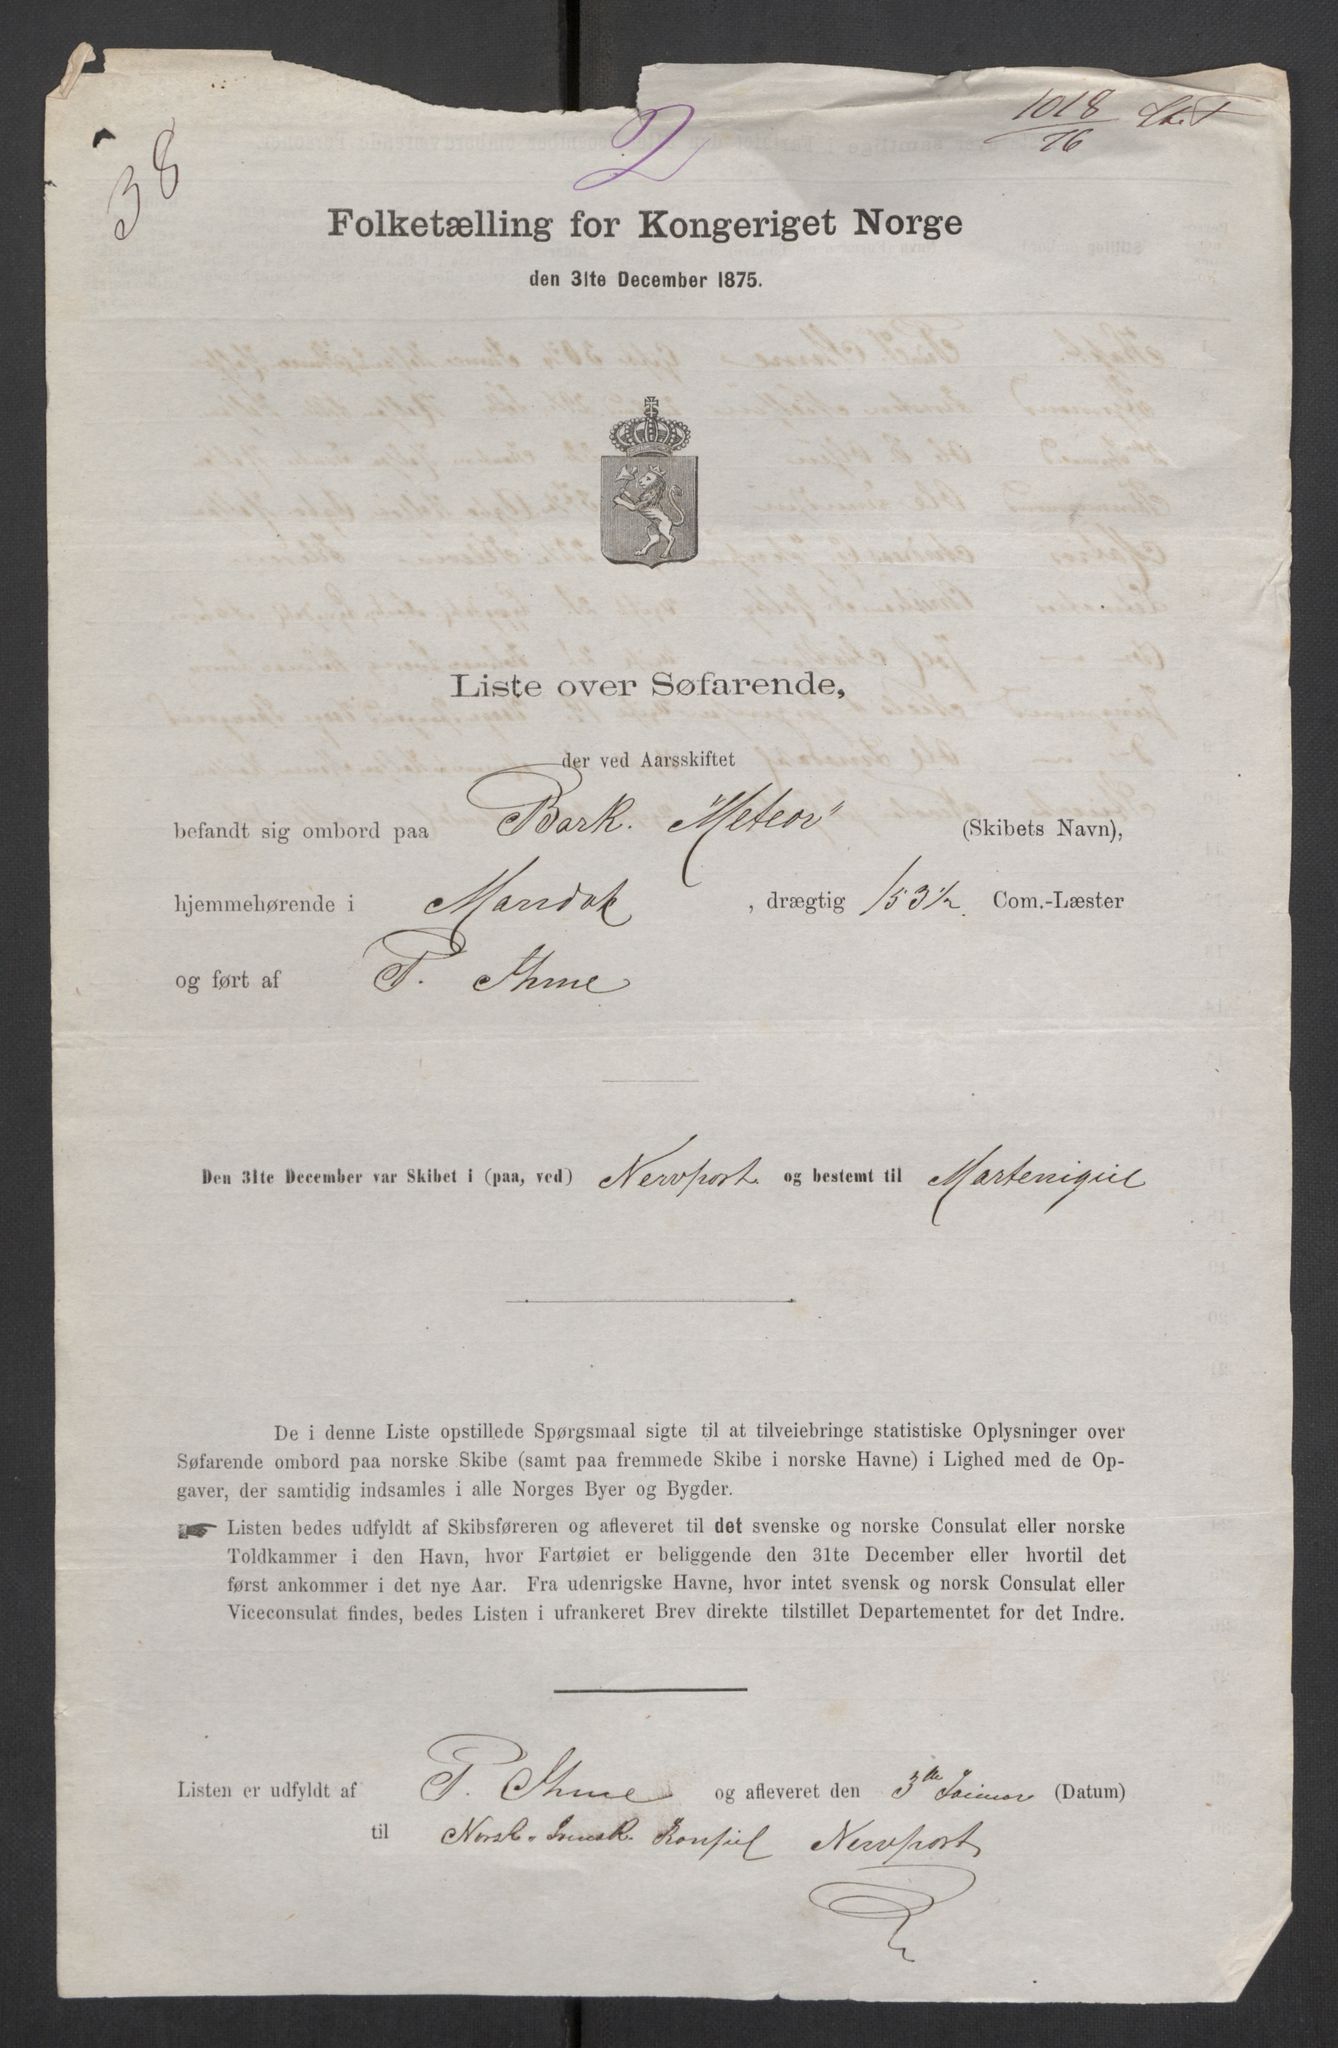 38
2
1018
76
Folketælling for Kongeriget Norge
den 31te December 1875.
Liste over Søfarende,
der ved Aarsskiftet
befandt sig ombord paa Bark. "Meteor" (Skibets Navn),
hjemmehørende i Mandal, drægtig 153½ Com.-Læster
og ført af P. Ihme
Den 31te December var Skibet i (paa, ved) Newport og bestemt til Martenique
De i denne Liste opstillede Spørgsmaal sigte til at tilveiebringe statistiske Oplysninger over
Søfarende ombord paa norske Skibe (samt paa fremmede Skibe i norske Havne) i Lighed med de Op-
gaver, der samtidig indsamles i alle Norges Byer og Bygder.
☛ Listen bedes udfyldt af Skibsføreren og afleveret til det svenske og norske Consulat eller norske
Toldkammer i den Havn, hvor Fartøiet er beliggende den 31te December eller hvortil det
først ankommer i det nye Aar. Fra udenrigske Havne, hvor intet svensk og norsk Consulat eller
Viceconsulat findes, bedes Listen i ufrankeret Brev direkte tilstillet Departementet for det Indre.
Listen er udfyldt af P. Ihme og afleveret den 3die Januar (Datum)
til Norsk-Svensk Konsul Newport